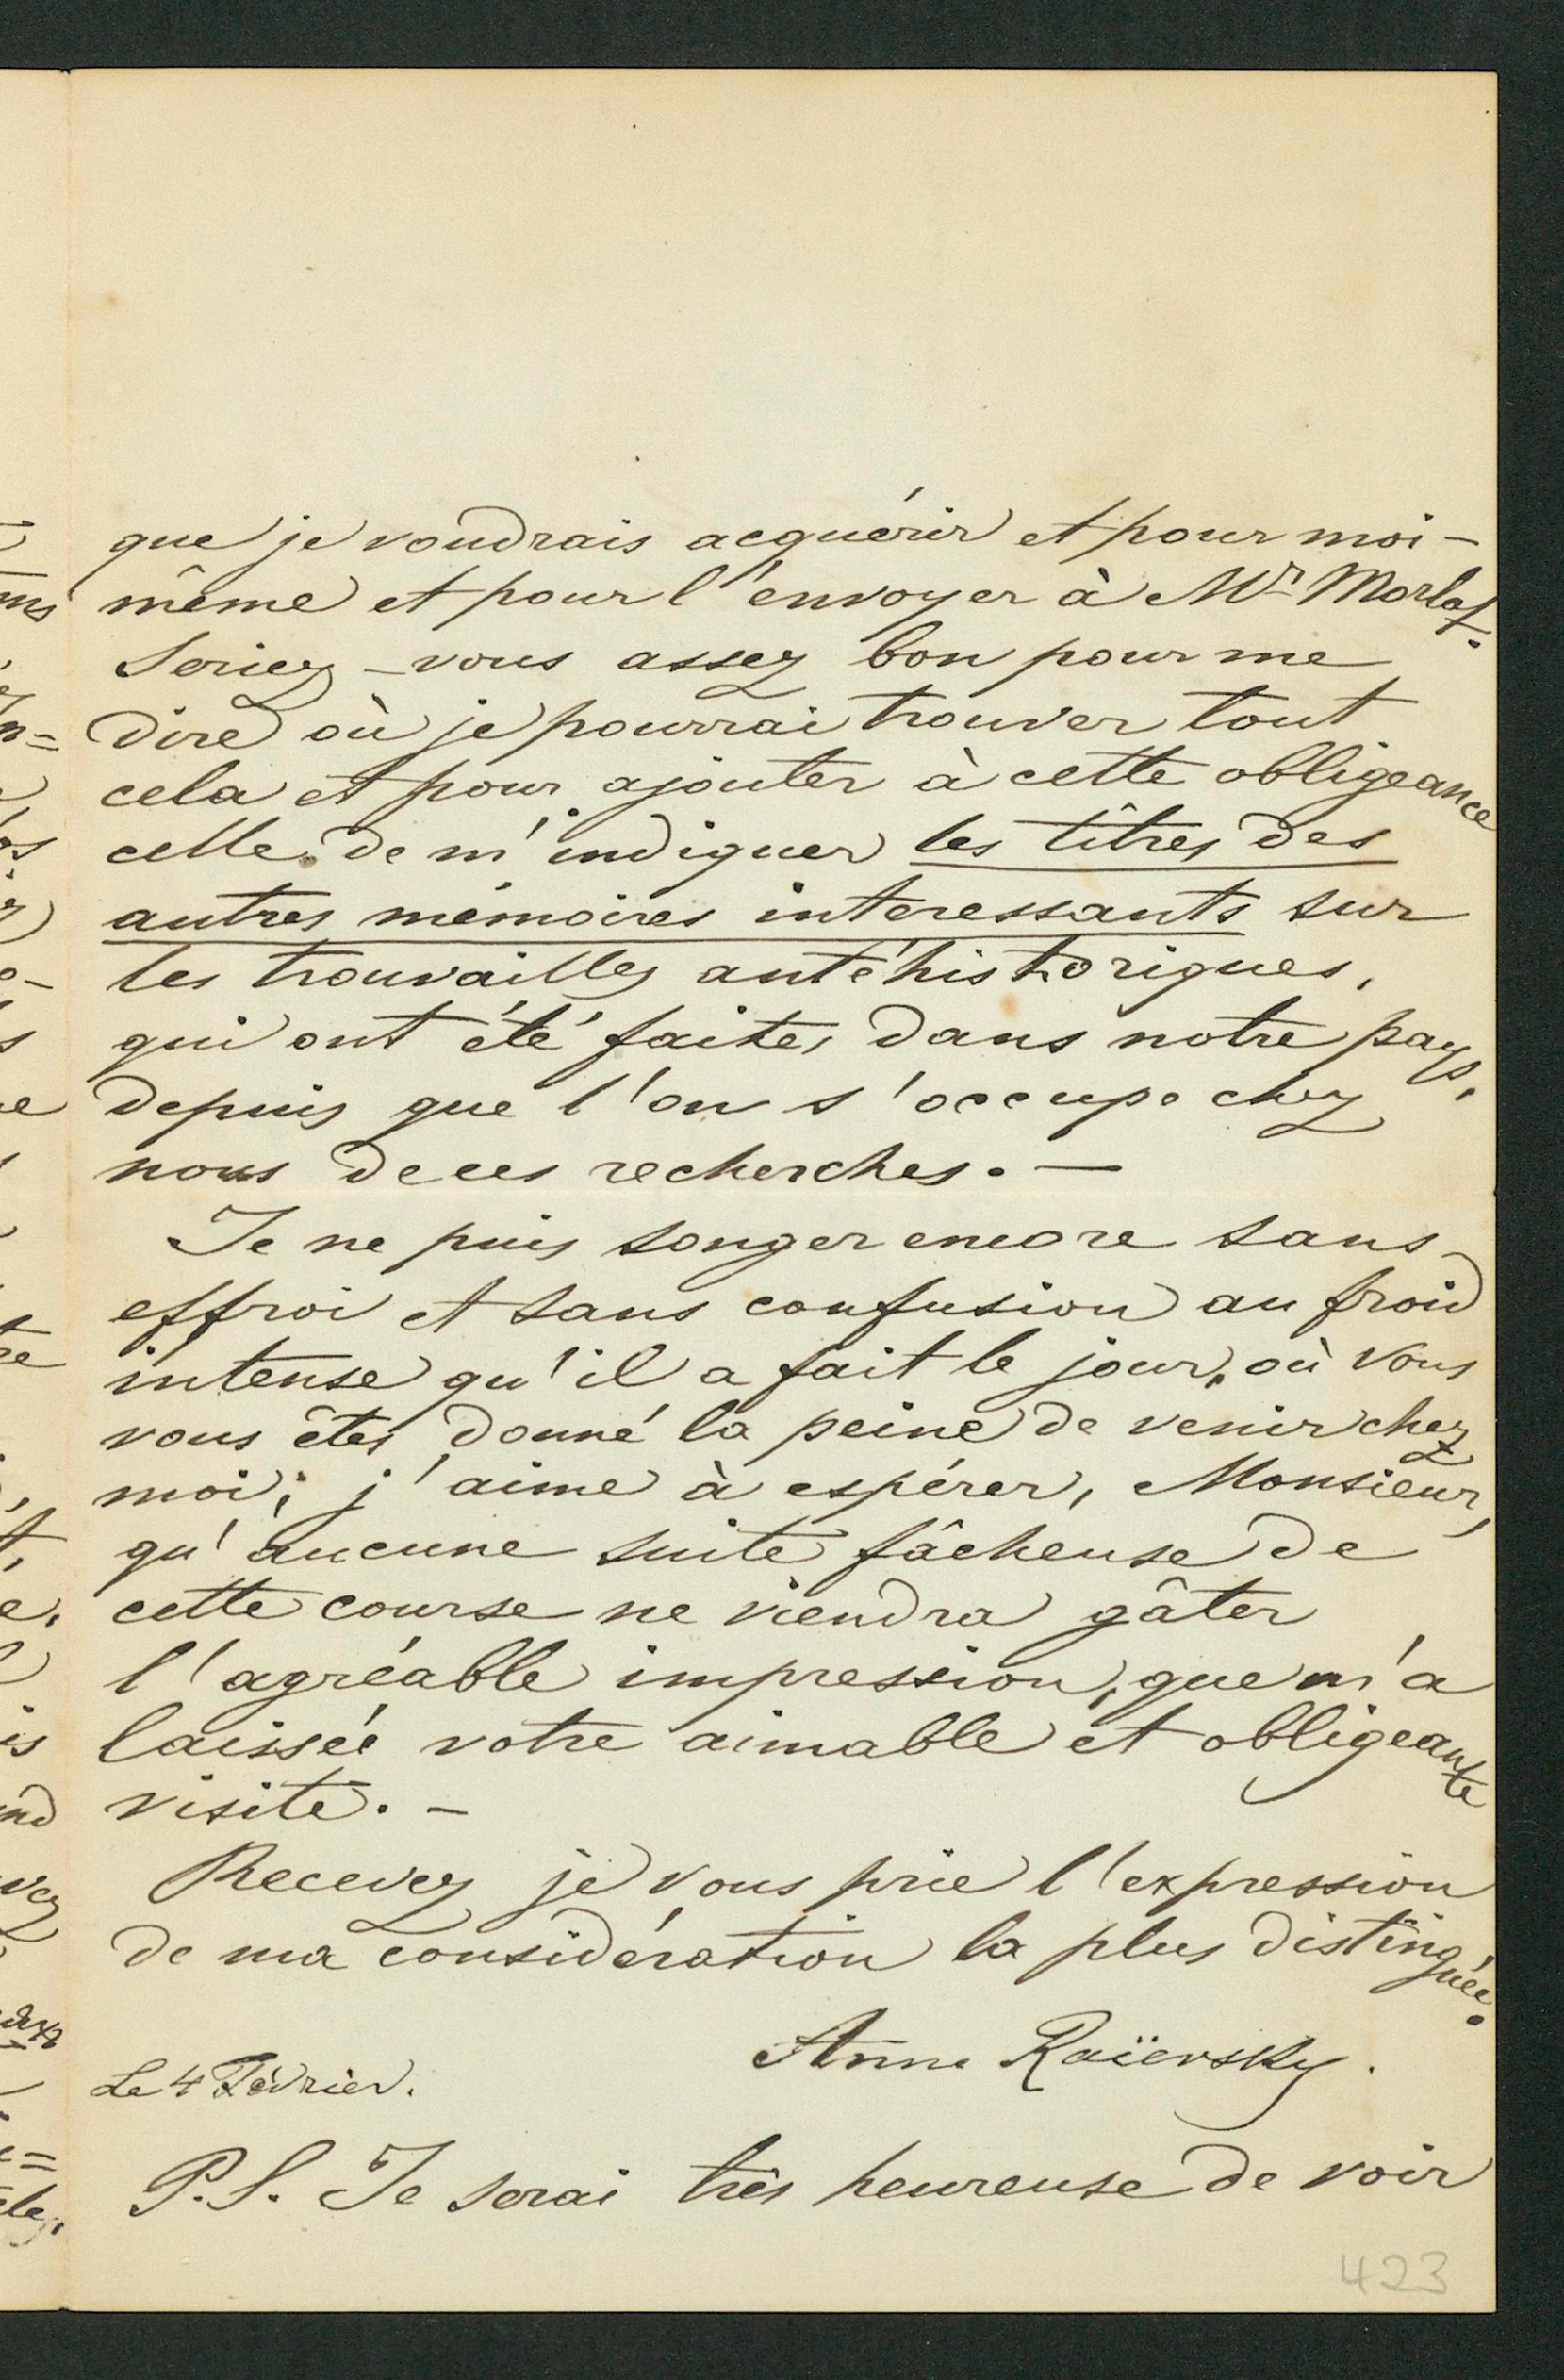 que je voudrais acquérir et pour moi-
même et pour l'envoyer à Mr Morlot.
Seriez-vous assez bon pour me
dire où je pourrai trouver tout
cela et pour ajouter à cette obligeance
celle de m'indiquer les tîtres des
autres mémoires interessants sur
les trouvailles antéhistoriques,
qui ont été faites dans notre pays,
depuis que l'on s'occupe chez
nous de ces recherches. —
Je ne puis songer encore sans
effroi et sans confusion au froid
intense qu'il a fait le jour, où vous
vous êtes donné la peine de venir chez
moi; j'aime à espérer, Monsieur,
qu'aucune suite fâcheuse de
cette course ne viendra gâter
l'agréable impression, que m'a
laissée votre aimable et obligeante
visite. –
Recevez je vous prie l'expression
de ma considération la plus distinguée.
Anna Raïevsky.
Le 4 Février.
P.S. Je serai très heureuse de voir
423